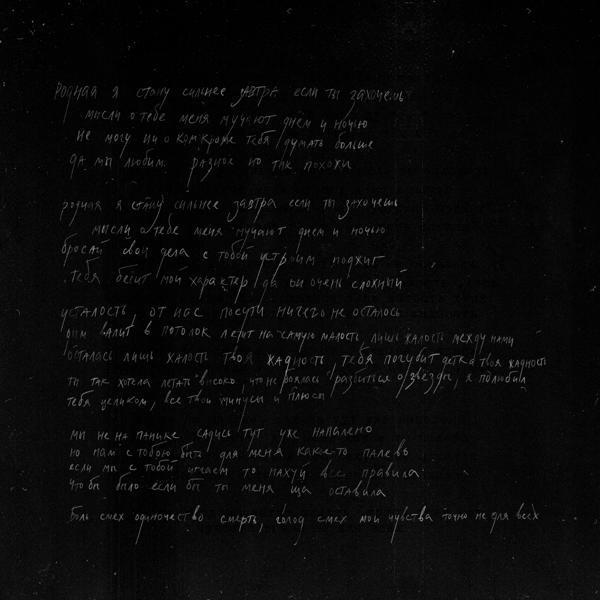 Родная я стану сильнее завтра если ты захочешь
мысли о тебе меня мучают днём и ночью
не могу ни о ком кроме тебя думать больше
да мы любим разное но так похожи
родная я стану сильнее завтра если ты захочешь
мысли о тебе меня мучают днем и ночью
бросай свои дела с тобой устроим поджиг
тебя бесит мой характер да он очень сложный
усталость, от нас почти ничего не осталось
дым валит в потолок летит на самую малость, лишь жалость между нами
осталась лишь жалость твоя жадность, тебя погубит детка твоя жадность
ты так хотела летать высоко, что не боялась разбиться о звёзды, я полюбил
тебя целиком, все твои минусы и плюсы
мы не на панике садись тут уже напалено
но нам с тобою быть для меня какое-то палево
если мы с тобой играем то нахуй все правила
что бы было если бы ты меня ща оставила
Боль смех одиночество смерть, голод смех мои чувства точно не для всех